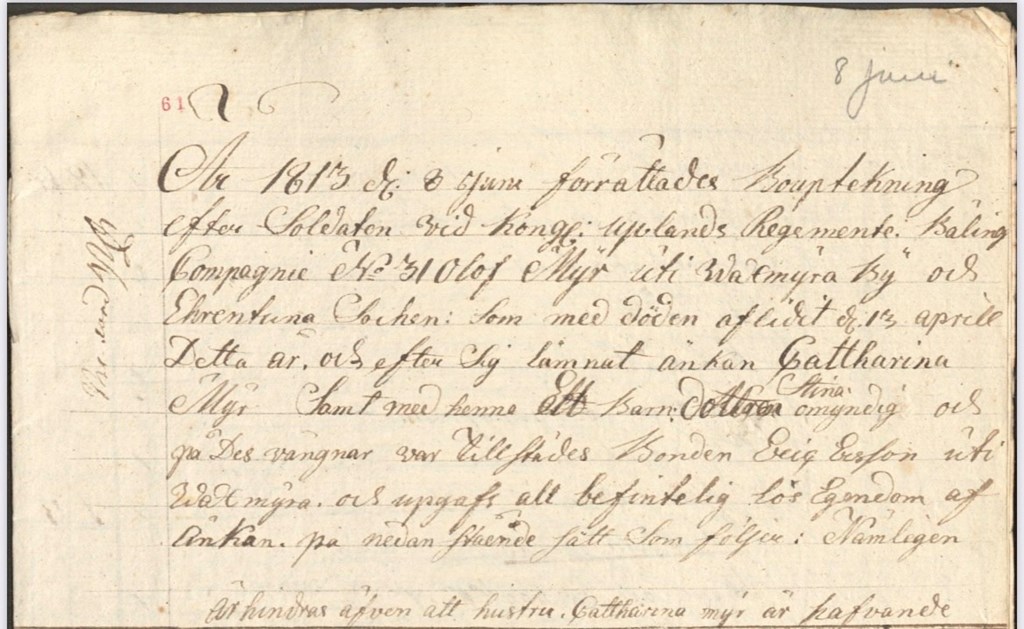 8 Juni
61
År 1813 d: 8 Juni förrättades Bouptekning
efter Soldaten vid Kongl: Uplands Regemente. Bäling
Compagnie No 31 Olof Myr uti Wadmyra By och
Ehrentuna Sochen: som med döden aflidit d. 13 aprill
Detta år. och efter Sig lämnat änkan Cattharina
Myr Samt med henne Ett Barn: dottren Stina omyndig och
på Des vängnar var Tillstädes Bonden Eric Ersson uti
Wadmyra. och upgafs all befintelig lös Egendom af
Änkan. på nedan stående sätt Som följer: Nämligen
hindras äfven att hustru. Cattharina myr är hafvande